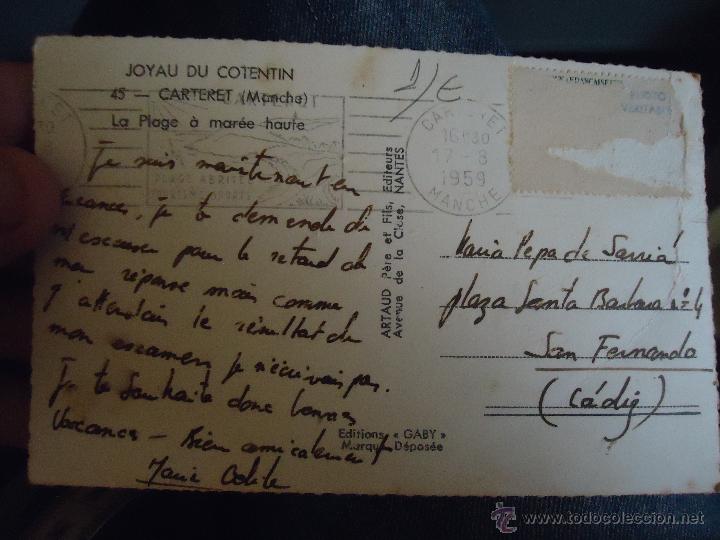 JOYAU DU COTENTIN
45 — CARTERET (Manche)
La Plage à marée haute
1/€
Je suis maintenant en
vacances, je te demande de
m'excuser pour le retard de
ma réponse mais comme
j'attendais le résultat de
mon examen, je n'écrivais pas.
Je te souhaite donc bonnes
Vacances — Bien amicalement
Marie Odile
ARTAUD Père et Fils, Editeurs
Avenue de la Close, NANTES
Editions « GABY »
Marque Déposée
CARTERET
16H30
17-8
1959
MANCHE
PLAGE ABRITÉE
PHOTO
VERITABLE
Maria Pepa de Sarriá
plaza Santa Barbara nº 4
San Fernando
(Cádiz)
www.todocoleccion.net